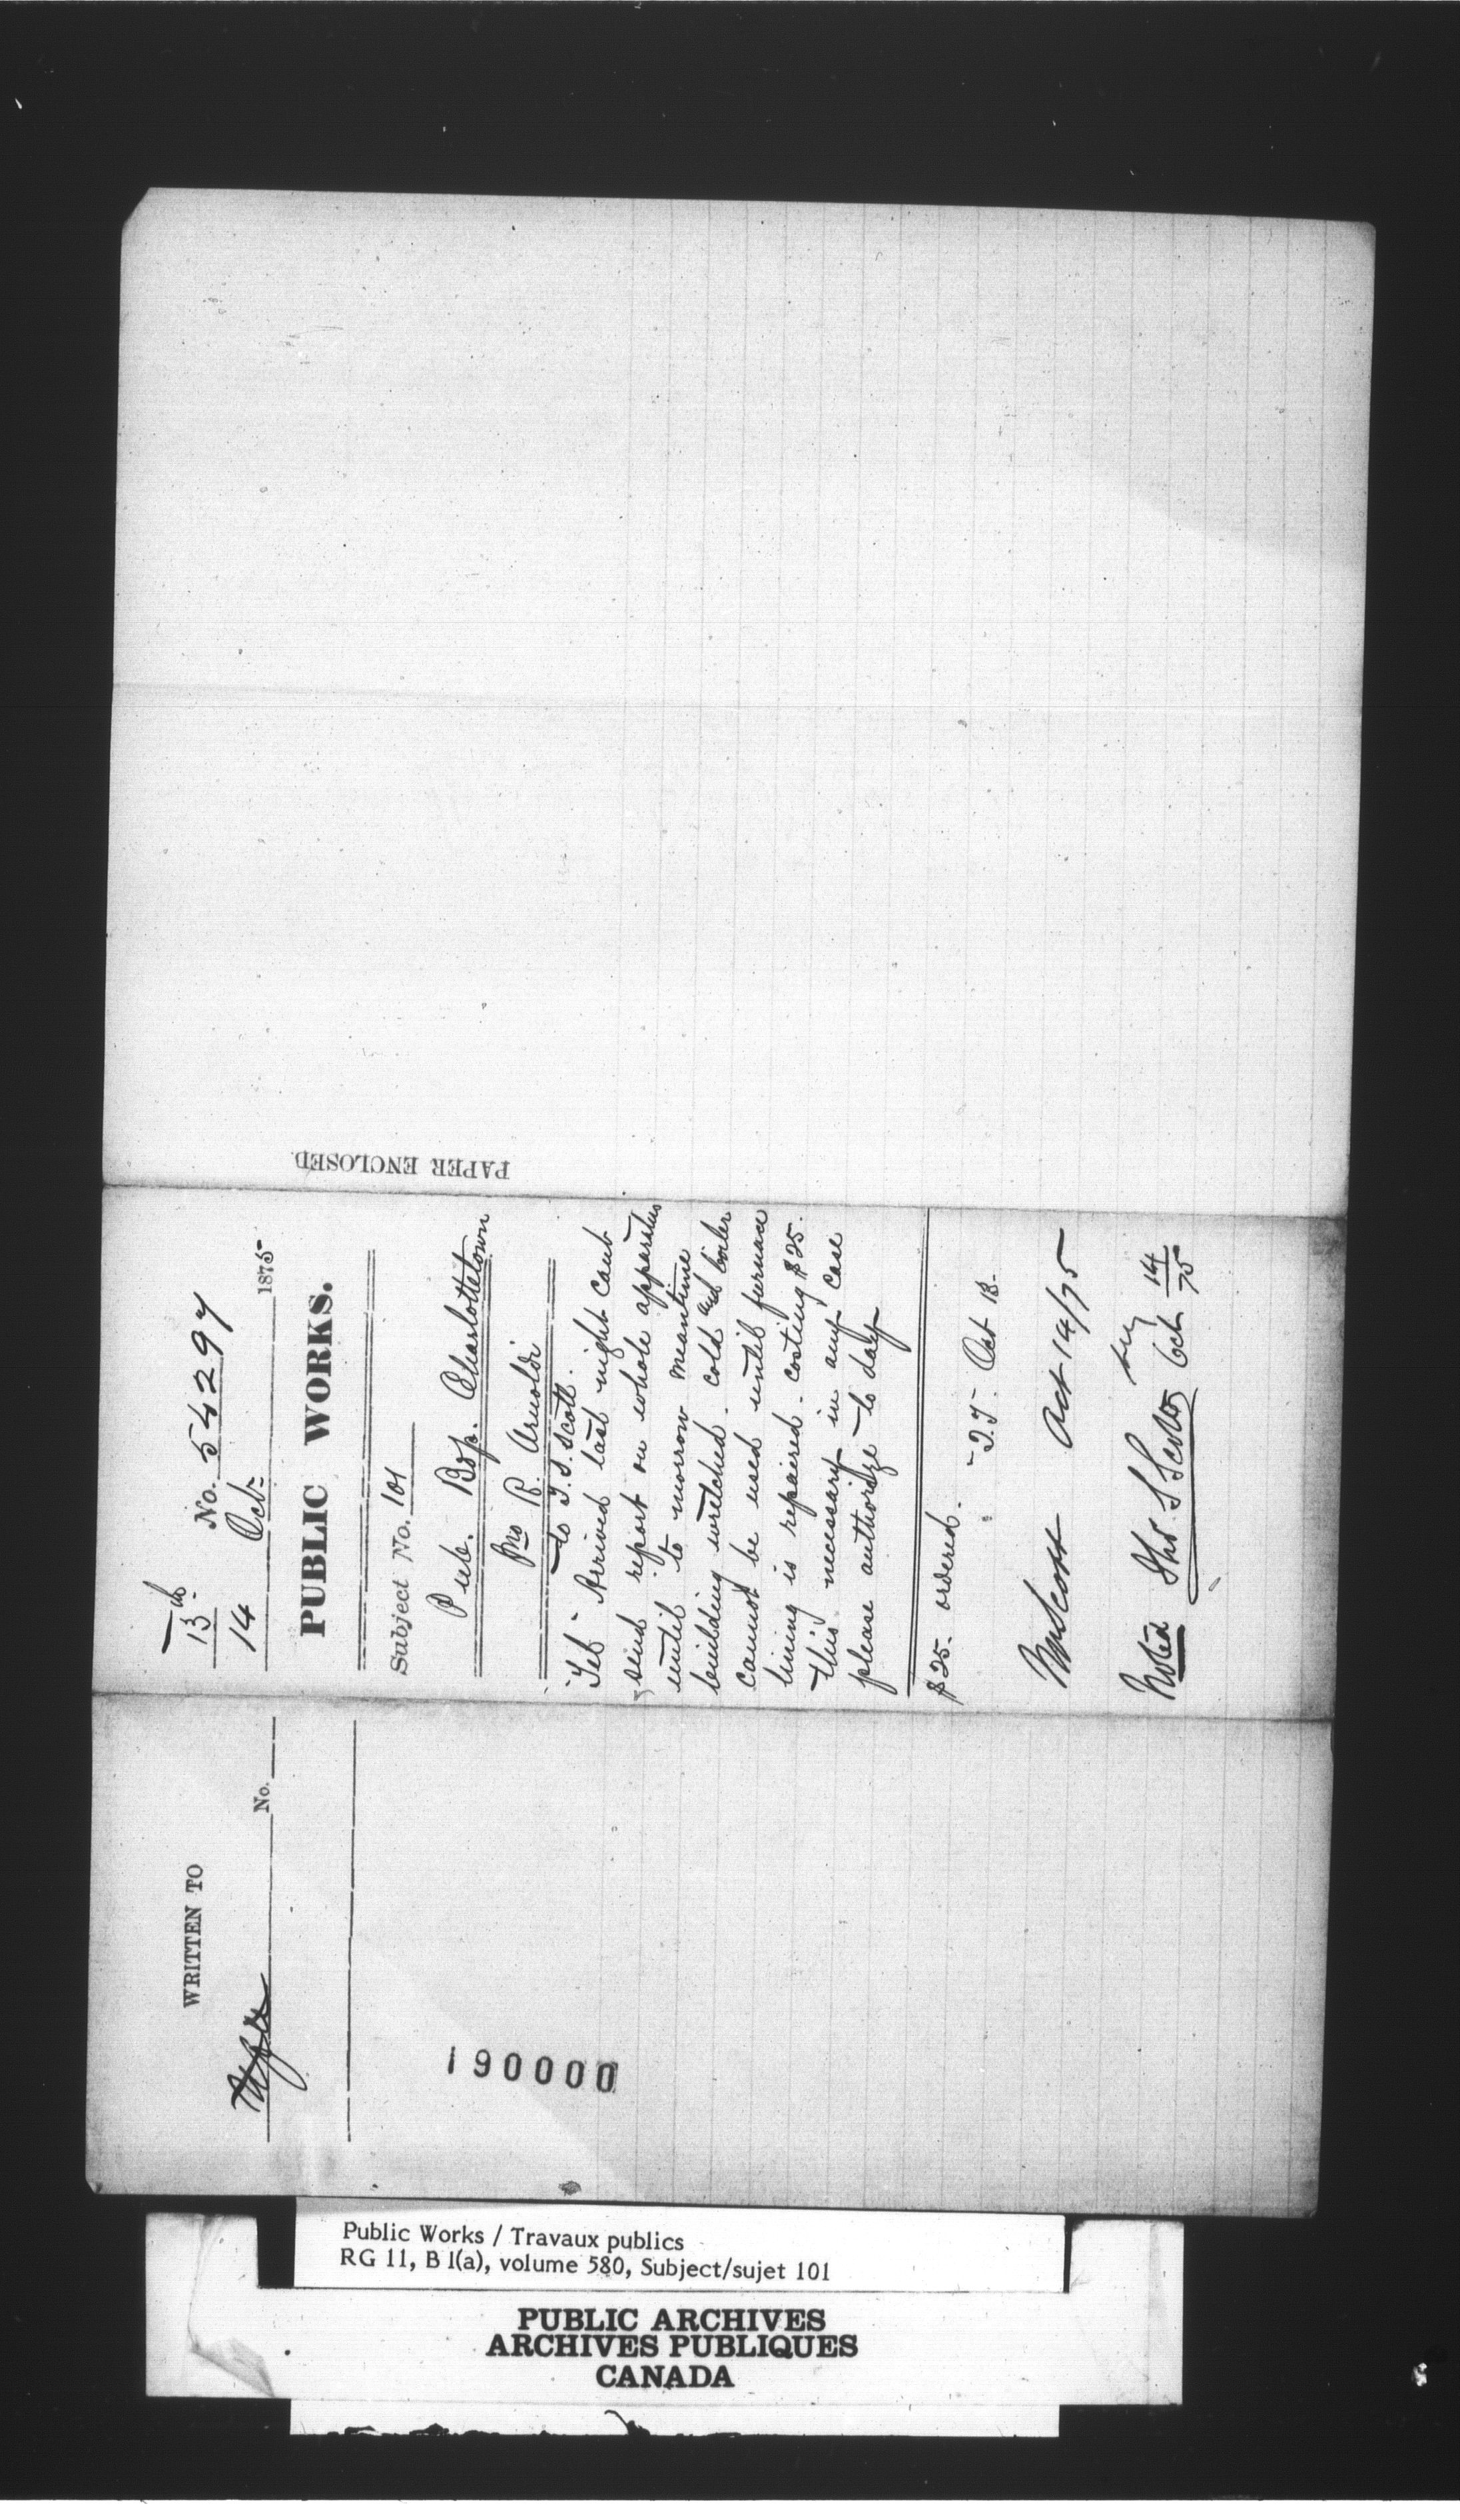 13th
No. 54297
14 Oct= 1875
PUBLIC WORKS.
Subject No. 101
Pub. Bdg. Charlottetown
Mo R. Arnoldi
to T. S. Scott.
Tel - Arrived last night cant
send report on whole apparatus
until to morrow meantime
building wretched - cold and boiler
cannot be used until furnace
lining is repaired - costing $25.
this necessary in any case
please authorize to day
$25. ordered.
Oct 13-
Mr Scott Oct 14/75
Noted Thos. S Scott Oct 14/75
PAPER ENCLOSED
WRITTEN TO
No.
190000
Public Works / Travaux publics
RG 11, B 1(a), volume 580, Subject/sujet 101
PUBLIC ARCHIVES
ARCHIVES PUBLIQUES
CANADA